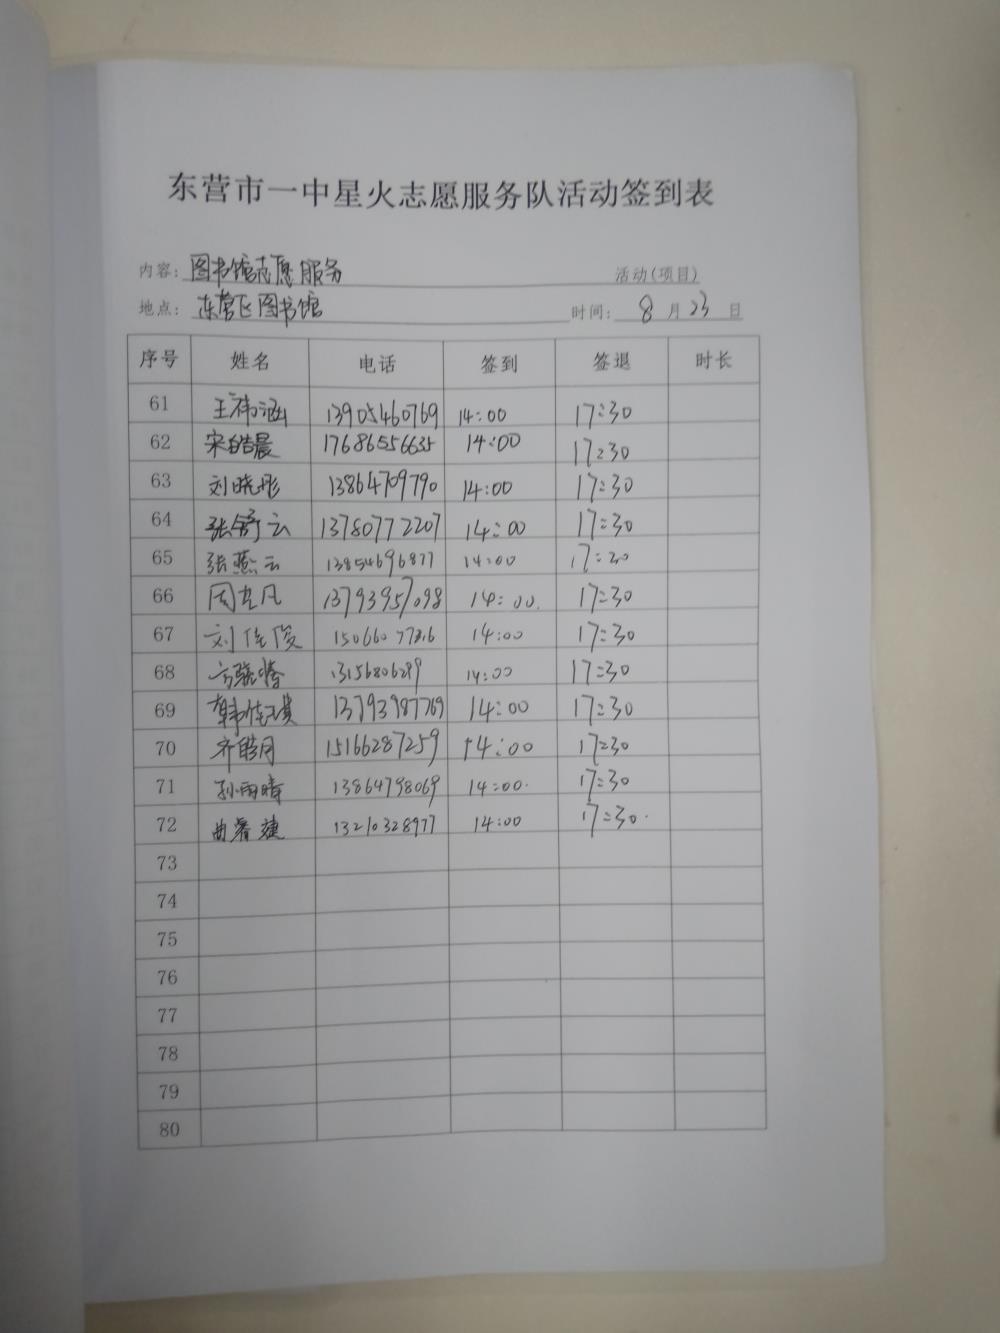 东营市一中星火志愿服务队活动签到表
内容：图书馆志愿服务 活动(项目)
地点：东营区图书馆 时间：8月23日
序号 姓名 电话 签到 签退 时长
61 王祎涵 13905460769 14:00 17:30
62 宋皓晨 17686556635 14:00 17:30
63 刘晓彤 13864709790 14:00 17:30
64 张舒云 13780772207 14:00 17:30
65 张燕云 13854696877 14:00 17:30
66 13793957098 14:00. 17:30
67 刘佳俊 14:00 17:30
68 13156806289 14:00 17:30
69 韩佳琪 13793987769 14:00 17:30
70 齐皓月 15166287259 14:00 17:30
71 孙雨晴 13864798069 14:00. 17:30
72 13210328977 14:00 17:30.
73
74
75
76
77
78
79
80